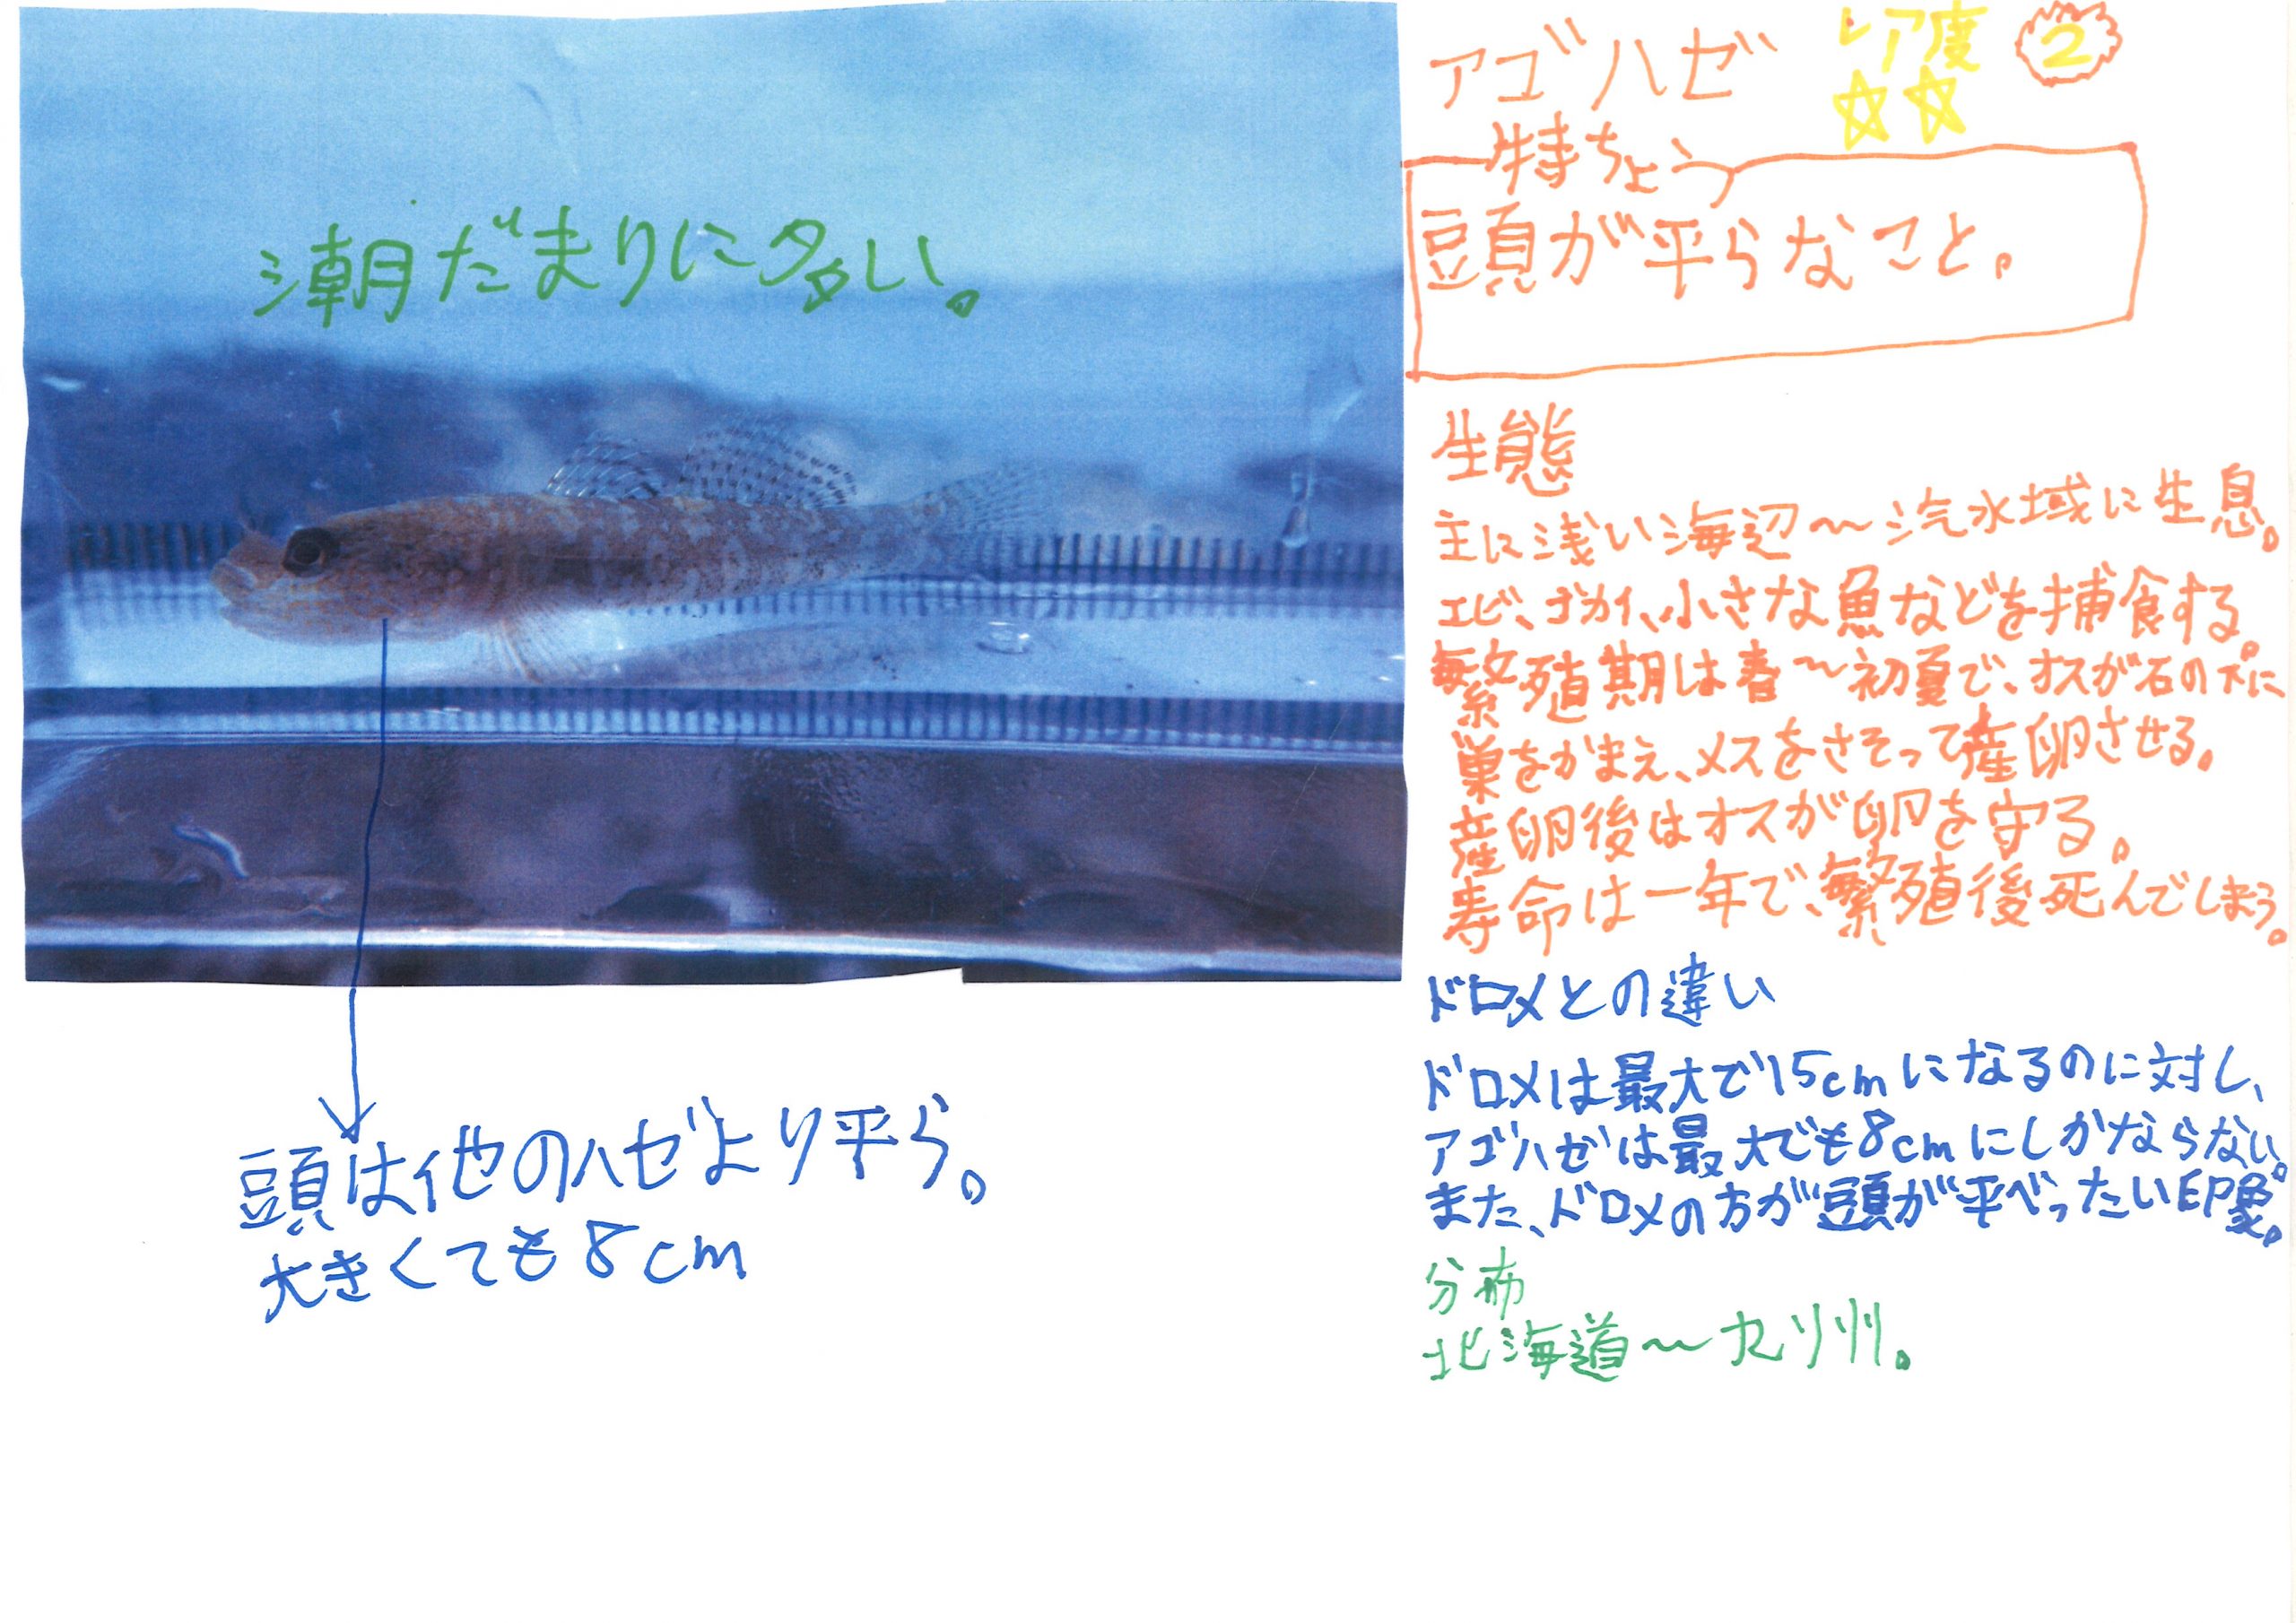 アゴハゼ
レア度
☆☆
2
特ちょう
頭が平らなこと。
潮だまりに多い。
頭は他のハゼより平ら。
大きくても8cm
生態
主に浅い海辺〜汽水域に生息。
エビ、ゴカイ、小さな魚などを捕食する。
繁殖期は春〜初夏で、オスが石の下に
巣をかまえ、メスをさそって産卵させる。
産卵後はオスが卵を守る。
寿命は一年で、繁殖後死んでしまう。
ドロメとの違い
ドロメは最大で15cmになるのに対し、
アゴハゼは最大でも8cmにしかならない。
また、ドロメの方が頭が平べったい印象。
分布
北海道〜九州。